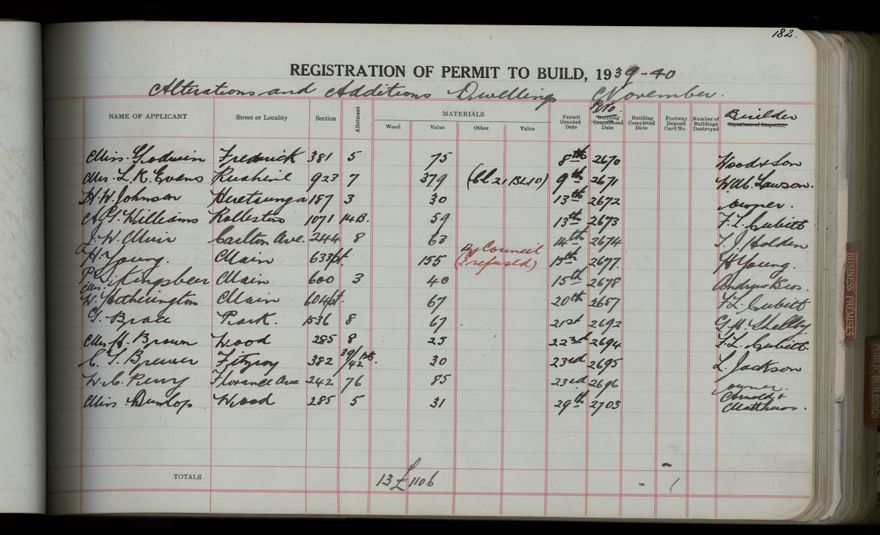 182.
REGISTRATION OF PERMIT TO BUILD, 1939-40
Alterations and Additions Dwellings November.
NAME OF APPLICANT Street or Locality Section Allotment MATERIALS Wood Value Other Value Permit Granted Date No. Building Commenced Date Building Completed Date Footway Deposit Card No. Number of Buildings Destroyed Builder Signature of Inspector
Miss Godwin Frederick 381 5 75 8th 2670 Wood & Son
Mrs. L. R. Evans Rushhil 923 7 379 (Cl 21 BL10) 9th 2671 W Lawson.
H. W. Johnson Heretaunga 187 3 30 13th 2672 owner.
A. G. Williams Rolleston 1071 14B. 59 13th 2673 F. L. Cubitt
J. W. Muir Carlton Ave. 244 8 63 14th 2674 T. J. Holden
H. Young. Main 633 pt. 155 By Council (refused) 15th 2677 H Young.
Kingsbeer Main 600 3 40 15th 2678 Andrew Bros.
W. Hetherington Main 604 pt. 67 20th 2687 F L Cubitt
G. Brace Park. 1536 8 67 21st 2692 G. H. Shelley
Brown Wood 285 8 25 22nd 2694 F. L. Cubitt
C. T. Brewer Fitzroy 382 39/42 pts. 30 23rd 2695 L. Jackson
W. C. Perry Florance Ave 242 76 85 23rd 2696 owner.
Miss Dunlop Wood 285 5 31 29th 2703 Arnold & Matthews.
TOTALS 13 £1106 - 1
BUSINESS PREMISES
PUBLIC BUILDINGS